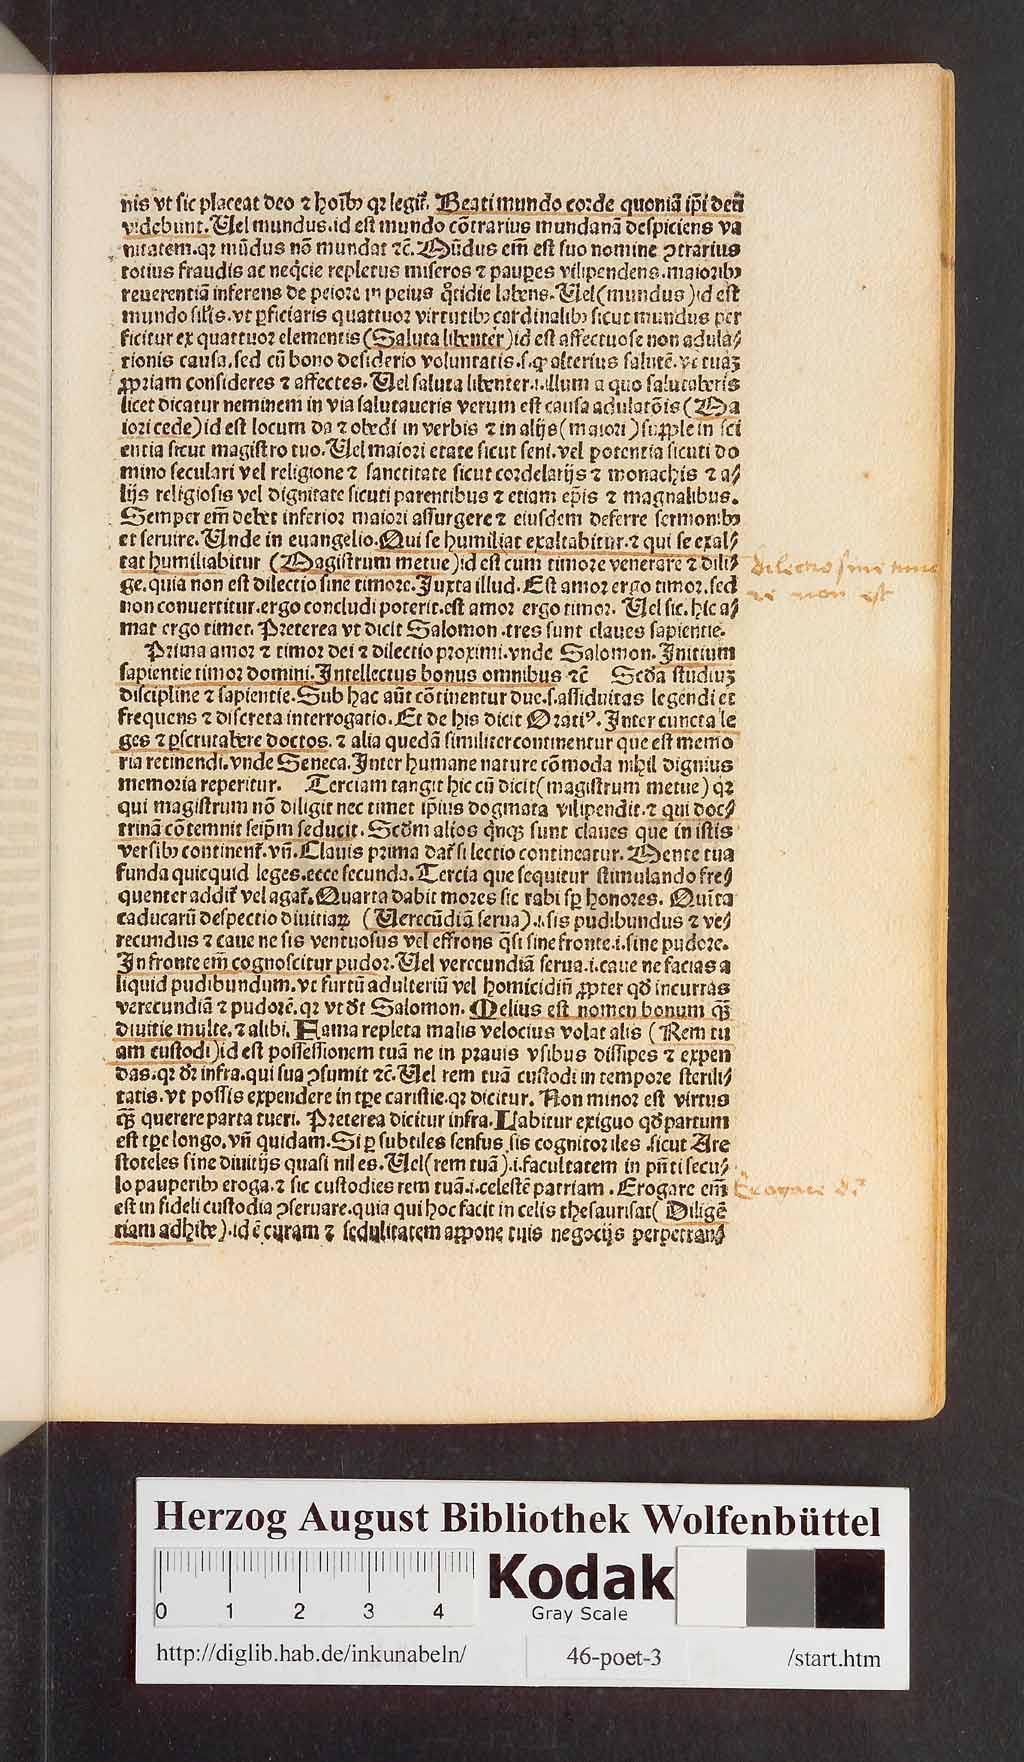 nis vt sic placeat deo ⁊ hoīb⁹ qꝛ legit᷑. Beati mundo corde quoniā ip̄i deū
videbunt. Uel mundus.id est mundo cōtrarius mundanā despiciens va
nitatem.qꝛ mūdus nō mundat ⁊c̄. Mūdus em̄ est suo nomine ↄtrarius
totius fraudis ac neq̄cie repletus miseros ⁊ paupes vilipendens.maiorib⁹
reuerentiā inferens de peiore in peius q̊tidie labens. Uel (mundus) id est
mundo silīs.vt ꝑficiaris quattuor virtutib⁹ cardinalib⁹ sicut mundus per
ficitur ex quattuor elementis (Saluta libenter) id est affectuose non adula⸗
tionis causa.sed cū bono desiderio voluntatis.s.ꝙ alterius salutē.vt tuāꝫ
ꝓpriam consideres ⁊ affectes. Uel saluta libenter.i.illum a quo salutaberis
licet dicatur neminem in via salutaueris verum est causa adulatōis (Ma
iori cede) id est locum da ⁊ obedi in verbis ⁊ in alijs (maiori) supple in sci
entia sicut magistro tuo. Uel maiori etate sicut seni.vel potentia sicuti do
mino seculari vel religione ⁊ sanctitate sicut cordelarijs ⁊ monachis ⁊ a⸗
lijs religiosis vel dignitate sicuti parentibus ⁊ etiam ep̄is ⁊ magnalibus.
Semper em̄ debet inferior maiori assurgere ⁊ eiusdem deferre sermonib⁹
et seruire. Unde in euangelio. Qui se humiliat exaltabitur.⁊ qui se exal⸗
tat humiliabitur (Magistrum metue) id est cum timore venerare ⁊ dili⸗
ge. quia non est dilectio sine timore. Juxta illud. Est amor ergo timor.sed
non conuertitur.ergo concludi poterit.est amor ergo timor. Uel sic. hic a⸗
mat ergo timet. Preterea vt dicit Salomon.tres sunt claues sapientie.
Prima amor ⁊ timor dei ⁊ dilectio proximi.vnde Salomon. Initium
sapientie timor domini. Intellectus bonus omnibus ⁊c̄ Scd̄a studiuꝫ
discipline ⁊ sapientie. Sub hac aūt cōtinentur due.s.assiduitas legendi et
frequens ⁊ discreta interrogatio. Et de his dicit Orati⁹. Inter cuncta le
ges ⁊ ꝑscrutabere doctos. ⁊ alia quedā similiter continentur que est memo
ria retinendi.vnde Seneca. Inter humane nature cōmoda nihil dignius
memoria reperitur. Terciam tangit hic cū dicit (magistrum metue) qꝛ
qui magistrum nō diligit nec timet ip̄ius dogmata vilipendit.⁊ qui doc⸗
trinā cōtemnit seip̄m seducit. Scd̄m alios q̄nqꝫ sunt claues que in istis
versib⁹ continent᷑.vn̄. Clauis prima dat᷑ si lectio contineatur. Mente tua
funda quicquid leges.ecce secunda. Tercia que sequitur stimulando fre⸗
quenter addit᷑ vel agat᷑. Quarta dabit mores sic rabi sꝑ honores. Quīta
caducarū despectio diuitiaꝝ (Uerecūdiā serua).i.sis pudibundus ⁊ ve⸗
recundus ⁊ caue ne sis ventuosus vel effrons q̄si sine fronte.i.sine pudore.
In fronte em̄ cognoscitur pudor. Uel verecundiā serua.i.caue ne facias a
liquid pudibundum.vt furtū adulteriū vel homicidiū ꝓpter qd̄ incurras
verecundiā ⁊ pudorē.qꝛ vt d̄t Salomon. Melius est nomen bonum qꝫ̄
diuitie multe.⁊ alibi. Fama repleta malis velocius volat alis (Rem tu
am custodi) id est possessionem tuā ne in prauis vsibus dissipes ⁊ expen
das.qꝛ dr̄ infra.qui sua ↄsumit ⁊c̄. Uel rem tuā custodi in tempore sterili⸗
tatis.vt possis expendere in tꝑe caristie.qꝛ dicitur. Non minor est virtus
qꝫ̄ querere parta tueri. Preterea dicitur infra. Labitur exiguo qd̄ partum
est tꝑe longo.vn̄ quidam. Si ꝑ subtiles sensus sis cognitor iles.sicut Are
stoteles sine diuitijs quasi nil es. Uel (rem tuā).i.facultatem in pn̄ti secu⸗
lo pauperib⁹ eroga.⁊ sic custodies rem tuā.i.celestē patriam. Erogare em̄
est in fideli custodia ↄseruare.quia qui hoc facit in celis thesaurisat (Diligē
tiam adhibe).id ē curam ⁊ sedulitatem appone tuis negocijs perpetran⸗
dilectio sine timo
re non est
Erogare
Herzog August Bibliothek Wolfenbüttel
0 1 2 3 4
Kodak
Gray Scale
http://diglib.hab.de/inkunabeln/ 46-poet-3 /start.htm